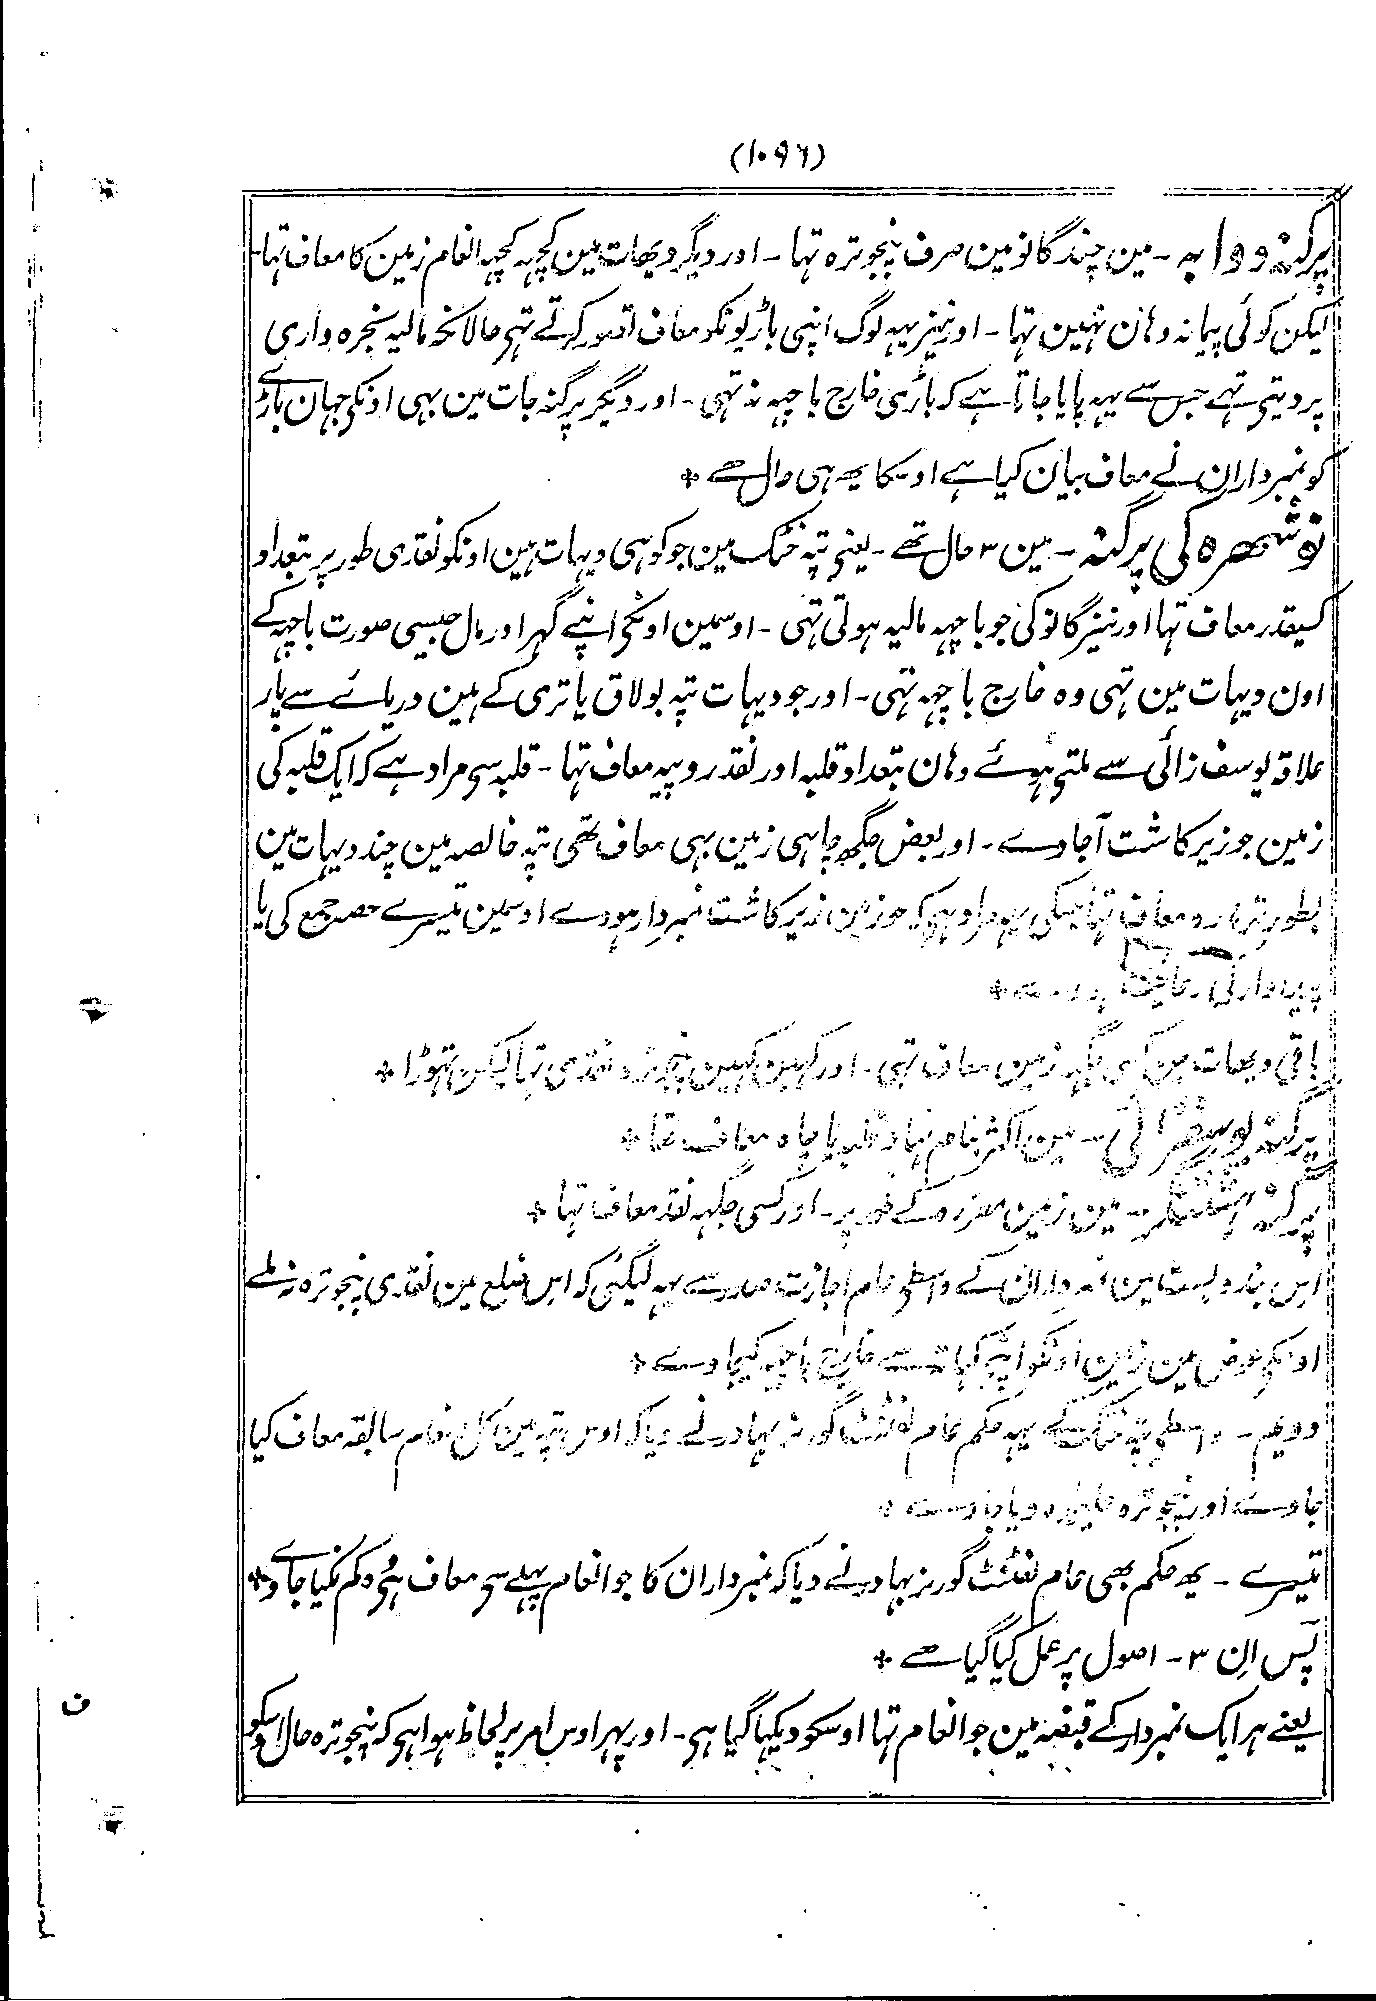 (۱۰۹۶)
پرگنہ دوابہ ـ مین چند گانو مین صرف پنجوترہ تہا ـ اور دیگر دیھات مین کچہہ کچہہ انعام زمین کا معاف تہا ـ
لیکن کوئی پیمانہ وہان نہین تہا ـ اور نیز یہہ لوگ اپنی باڑیونکو معاف تصور کرتے تہی حالانکہ مالیہ بنجرہ داری
پر دیتی تہے جس سے یہہ پایا جاتا ہے کہ باڑی خارج باچہہ نہ تہی ـ اور دیگر پرگنہ جات مین بہی اونکی جہان باڑی
کو نمبرداران نے معاف بیان کیا ہے اوسکا یھہ ہی حال ہے *
نوشھرہ کی پرگنہ ـ مین ۳ حال تھے ـ یعنے تپہ خٹک مین جو کوہی دیہات ہین اونکو نقدی طور پر بتعداد
کسیقدر معاف تہا اور نیز گانو کی جو باچہہ مالیہ ہوتی تہی ـ اوسمین اونکی اپنے گہر اور مال جیسی صورت باچہہ کے
اون دیہات مین تہی وہ خارج باچہہ تہی ـ اور جو دیہات تپہ بولاق یا تری کے ہین دریائے سے پار
علاقہ یوسف زائی سے ملتی ہوئے وہان بتعداد قلبہ اور نقد روپیہ معاف تہا ـ قلبہ سی مراد ہے کہ ایک قلبہ کی
زمین جو زیر کاشت آجاوے ـ اور بعض جگھہ چاہی زمین بہی معاف تھی تپہ خالصہ مین چند دیہات مین
بطور معاف تہا جسکی یہہ مراد ہی کہ جو زمین زیر کاشت نمبردار ہووے اوسمین تیسرے حصہ جمع کی یا
پیداوار کی رعایت ہووے *
باقی دیھات مین کسی جگہہ زمین معاف تہی ـ اور کہین کہین پنجوترہ نقدی تہا لیکن تہوڑا *
پرگنہ یوسفزائی ـ مین اکثر بنام نہاد قلبہ یا چاہ معاف تھا *
پرگنہ ہشتنگر ـ مین زمین مقررہ کے طور پر ـ اور کسی جگہہ نقد معاف تہا *
اس بندوبست مین نمبرداران کے واسطی عام اجازت صدر سے یہہ لیگئی کہ اس ضلع مین نقدی پنجوترہ نہ ملے
اونکی عوض مین زمین اونکو اپنے کہاتہ سے خارج باچہہ کیجاوے *
دویم ـ واسطی تپہ خٹک کے یہہ حکم عام لفٹنٹ گورنر بہادر نے دیا کہ اوس تپہ مین کل انعام سابقہ معاف کیا
جاوے اور پنجوترہ علیحدہ دیا جاوے *
تیسرے ـ یھہ حکم بھی عام لفٹنٹ گورنر بہادر نے دیا کہ نمبرداران کا جو انعام پہلے سی معاف ہی وہ کم نکیا جاوے *
پس اِن ۳ ـ اصول پر عمل کیا گیا ہے *
یعنے ہر ایک نمبردار کے قبضہ مین جو انعام تہا اوسکو دیکہا گیا ہی ـ اور پہر اوس امر پر لحاظ ہوا ہی کہ پنجوترہ حال اوسکو
ف